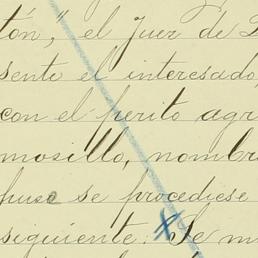 tón," el Juez de
sente el interesado,
con el perito agr
mosillo, nombr
puso se procediese
siguiente: Se m